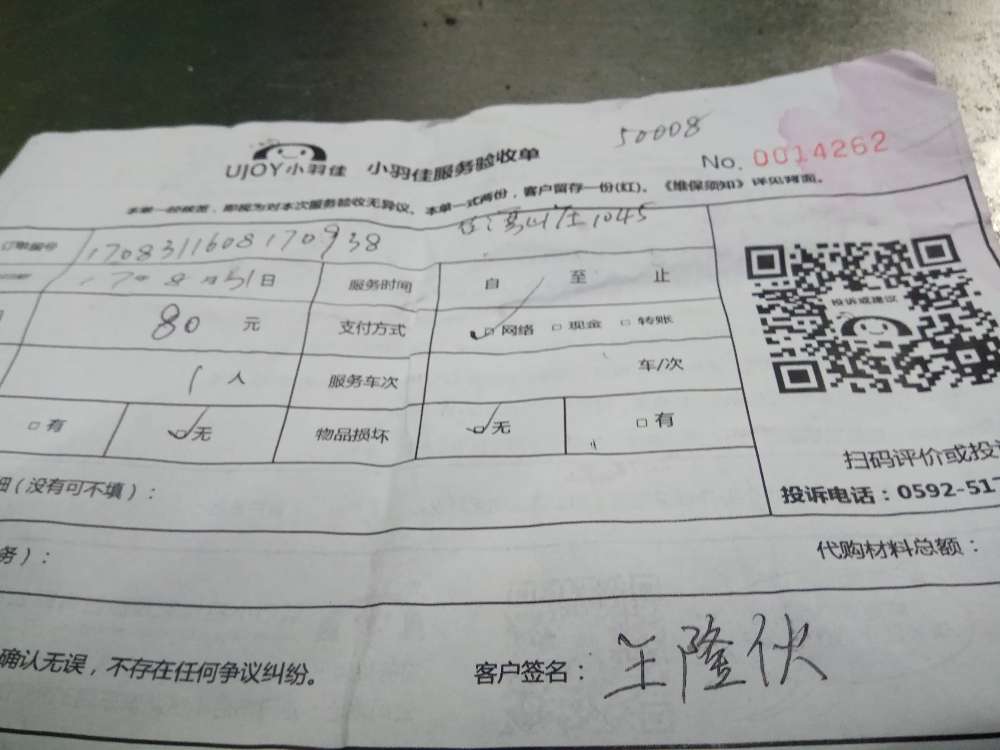 50008
UJOY小羽佳 小羽佳服务验收单 No. 0014262
本单一经核签，即视为对本次服务验收无异议。本单一式两份，客户留存一份(红)。《维保须知》详见背面。
1045
订单编号 170831160817093８
17年8月31日 服务时间 自 至 止
80 元 支付方式 □网络 □现金 □转账
1人 服务车次 车/次
□有 □无 物品损坏 □无 □有
投诉或建议
扫码评价或投诉
投诉电话：0592-517
细(没有可不填)：
务)： 代购材料总额：
确认无误，不存在任何争议纠纷。 客户签名：王隆伙